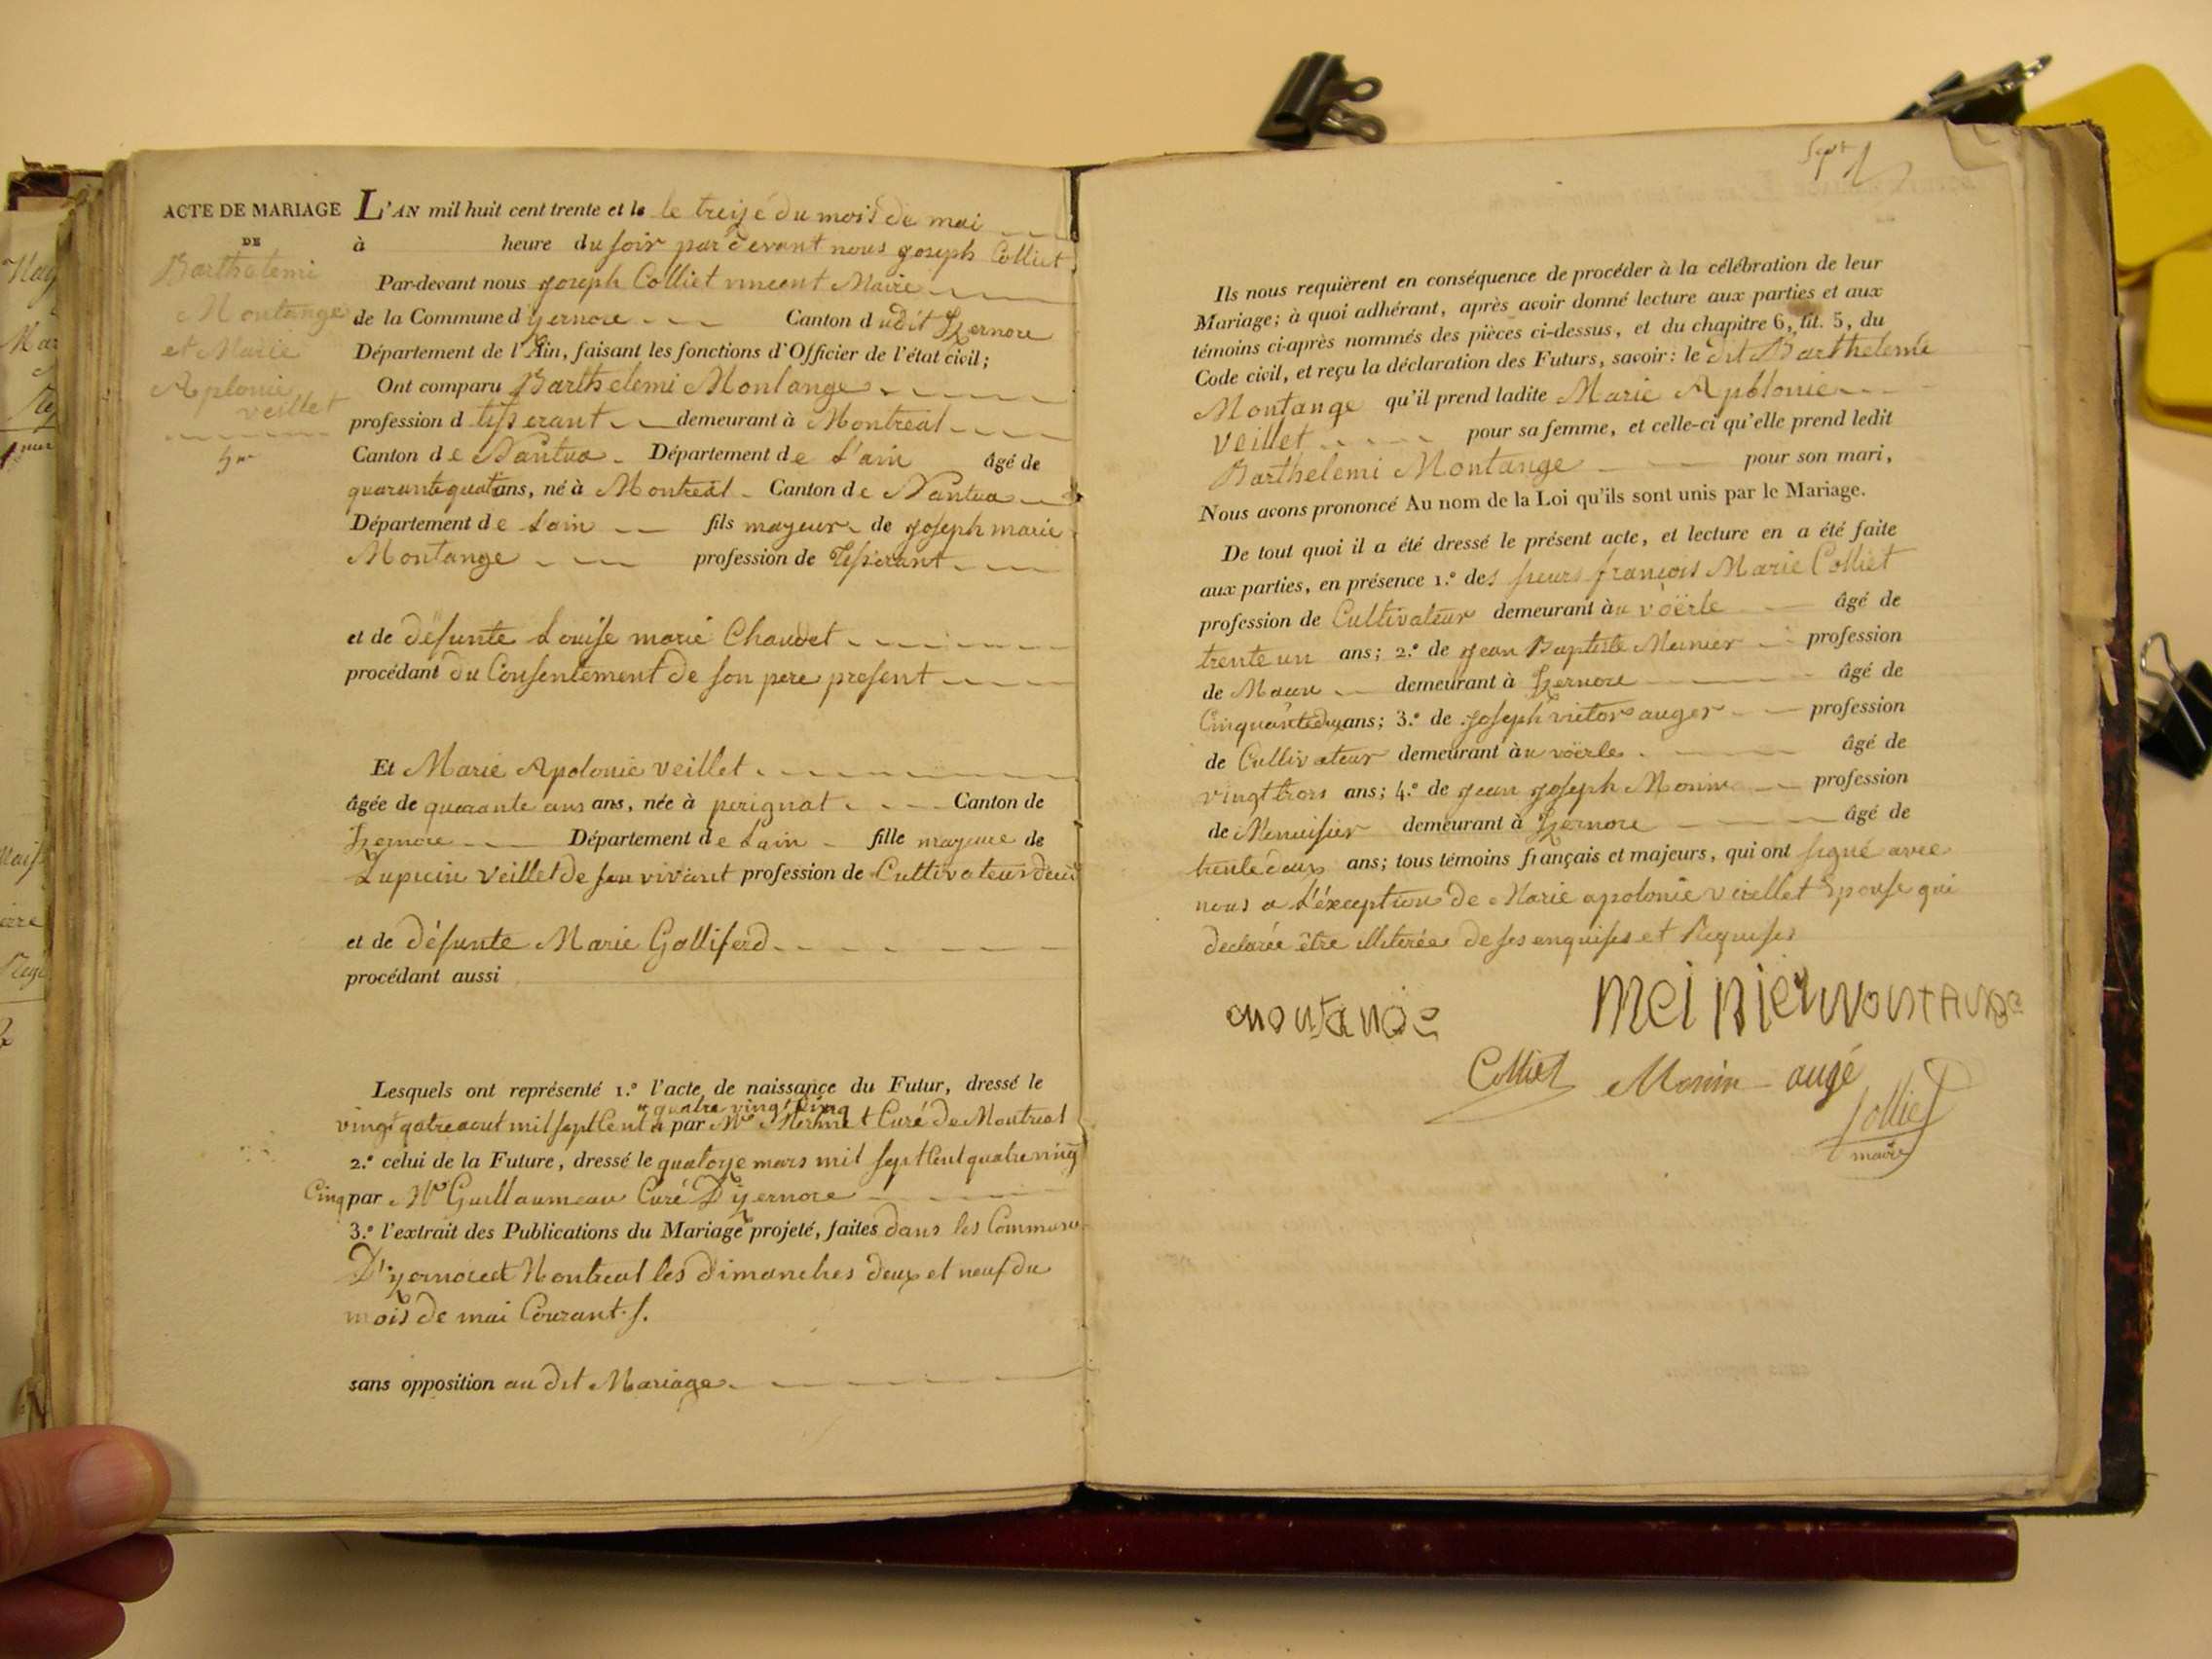 ACTE DE MARIAGE
DE
Barthelemi
Montange
et Marie
Aplonie
veillet
5me
L'AN mil huit cent trente et le le treize du mois de mai
à heure du soir par devant nous joseph Colliet
Par-devant nous joseph Colliet vincent Maire
de la Commune d'yzernore Canton dudit Izernore
Département de l'Ain, faisant les fonctions d'Officier de l'état civil;
Ont comparu Barthelemi Montange
profession d tisserant demeurant à Montreal
Canton de Nantua Département de L'ain âgé de
quarante quatre ans, né à Montreal Canton de Nantua
Département de Lain fils mayeur de joseph marie
Montange profession de Tisserant
et de défunte Louise marie Chaudet
procédant du Consentement de son pere present
Et Marie Apolonie veillet
âgée de quarante ans ans, née à perignat Canton de
Izernore Département de Lain fille mayeure de
Lupicin veillet de son vivant profession de Cultivateur
et de défunte Marie Golliferd
procédant aussi
Lesquels ont représenté 1.º l'acte de naissance du Futur, dressé le
quatre vingt cinq
vingt qatre aout mil sept Cent par Mr Mermet Curé de Montreal
2.º celui de la Future, dressé le quatorze mars mil sept Cent quatre vingt
Cinq par Mr Guillaumeau Curé D'yzernore
3.º l'extrait des Publications du Mariage projeté, faites dans les Commune
D'yzernore et Montreal les dimanches deux et neuf du
mois de mai Courant
sans opposition au dit Mariage
Sept
Ils nous requièrent en conséquence de procéder à la célébration de leur
Mariage; à quoi adhérant, après avoir donné lecture aux parties et aux
témoins ci-après nommés des pièces ci-dessus, et du chapitre 6, tit. 5, du
Code civil, et reçu la déclaration des Futurs, savoir: le dit Barthelemie
Montange qu'il prend ladite Marie Apolonie
veillet pour sa femme, et celle-ci qu'elle prend ledit
Barthelemi Montange pour son mari,
Nous avons prononcé Au nom de la Loi qu'ils sont unis par le Mariage.
De tout quoi il a été dressé le présent acte, et lecture en a été faite
aux parties, en présence 1.º des sieurs françois Marie Colliet
profession de Cultivateur demeurant àu voërle âgé de
trente un ans; 2.º de jean Baptiste Meinier profession
de Maçon demeurant à Izernore âgé de
Cinquante deux ans; 3.º de joseph victor auger profession
de Cultivateur demeurant àu voërle âgé de
vingt trois ans; 4.º de jean joseph Monin profession
de Menuisier demeurant à Izernore âgé de
trente deux ans; tous témoins français et majeurs, qui ont signé avec
nous a L'éxception de Marie apolonie veillet Epouse qui
declarée être illiterée de ses enquises et Requises
montange meinier montange
Colliet Monin augé
Colliet
maire